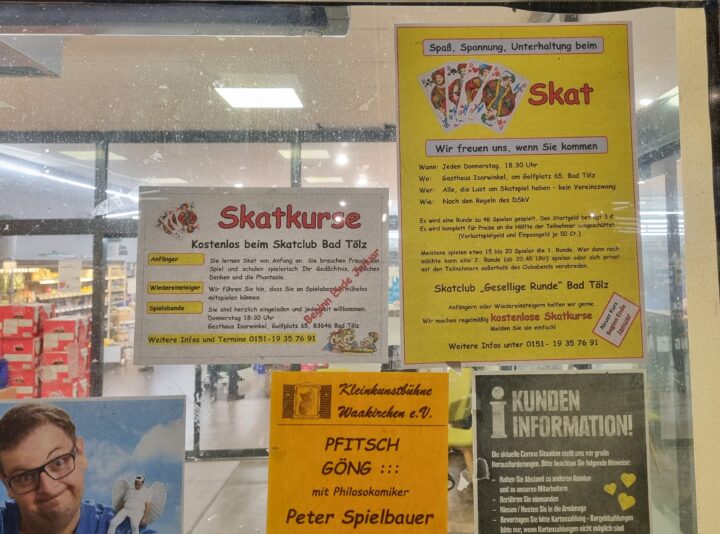 Spaß, Spannung, Unterhaltung beim
Skat
Wir freuen uns, wenn Sie kommen
Wann: Jeden Donnerstag, 18.30 Uhr
Wo: Gasthaus Isarwinkel, am Golfplatz 65, Bad Tölz
Wer: Alle, die Lust am Skatspiel haben - kein Vereinszwang
Wie: Nach den Regeln des DSkV
Es wird eine Runde zu 48 Spielen gespielt. Das Startgeld beträgt 3 €
Es wird komplett für Preise an die Hälfte der Teilnehmer ausgeschüttet.
(Verlustspielgeld und Einpassgeld je 50 Ct.)
Meistens spielen etwa 15 bis 20 Spieler die 1. Runde. Wer dann noch
möchte kann eine 2. Runde (ab 20.45 Uhr) spielen oder sich privat
mit den Teilnehmern außerhalb des Clubabends verabreden.
Skatclub „Gesellige Runde" Bad Tölz
Anfängern oder Wiedereinsteigern helfen wir gerne.
Wir machen regelmäßig kostenlose Skatkurse
Melden Sie sie einfach!
Weitere Infos unter 0151- 19 35 76 91
Neuer Kurs
Beginn Ende
Januar
Skatkurse
Kostenlos beim Skatclub Bad Tölz
Anfänger Sie lernen Skat von Anfang an. Sie brauchen Freude am
Spiel und schulen spielerisch Ihr Gedächtnis, logisches
Denken und die Phantasie.
Wiedereinsteiger Wir führen Sie hin, dass Sie an Spielabenden mühelos
mitspielen können.
Spielabende Sie sind herzlich eingeladen und jederzeit willkommen.
Donnerstag 18-30 Uhr
Gasthaus Isarwinkel, Golfplatz 65, 83646 Bad Tölz
Weitere Infos und Termine 0151- 19 35 76 91
Beginn Ende Januar
Kleinkunstbühne
Waakirchen e.V.
PFITSCH
GÖNG :::
mit Philosokomiker
Peter Spielbauer
KUNDEN
INFORMATION!
Die aktuelle Corona Situation stellt uns vor große
Herausforderungen. Bitte beachten Sie folgende Hinweise:
- Halten Sie Abstand zu anderen Kunden
und zu unseren Mitarbeitern
- Berühren Sie niemanden
- Niesen / Husten Sie in die Armbeuge
- Bevorzugen Sie bitte Kartenzahlung - Bargeldzahlungen
bitte nur, wenn Kartenzahlung nicht möglich sind